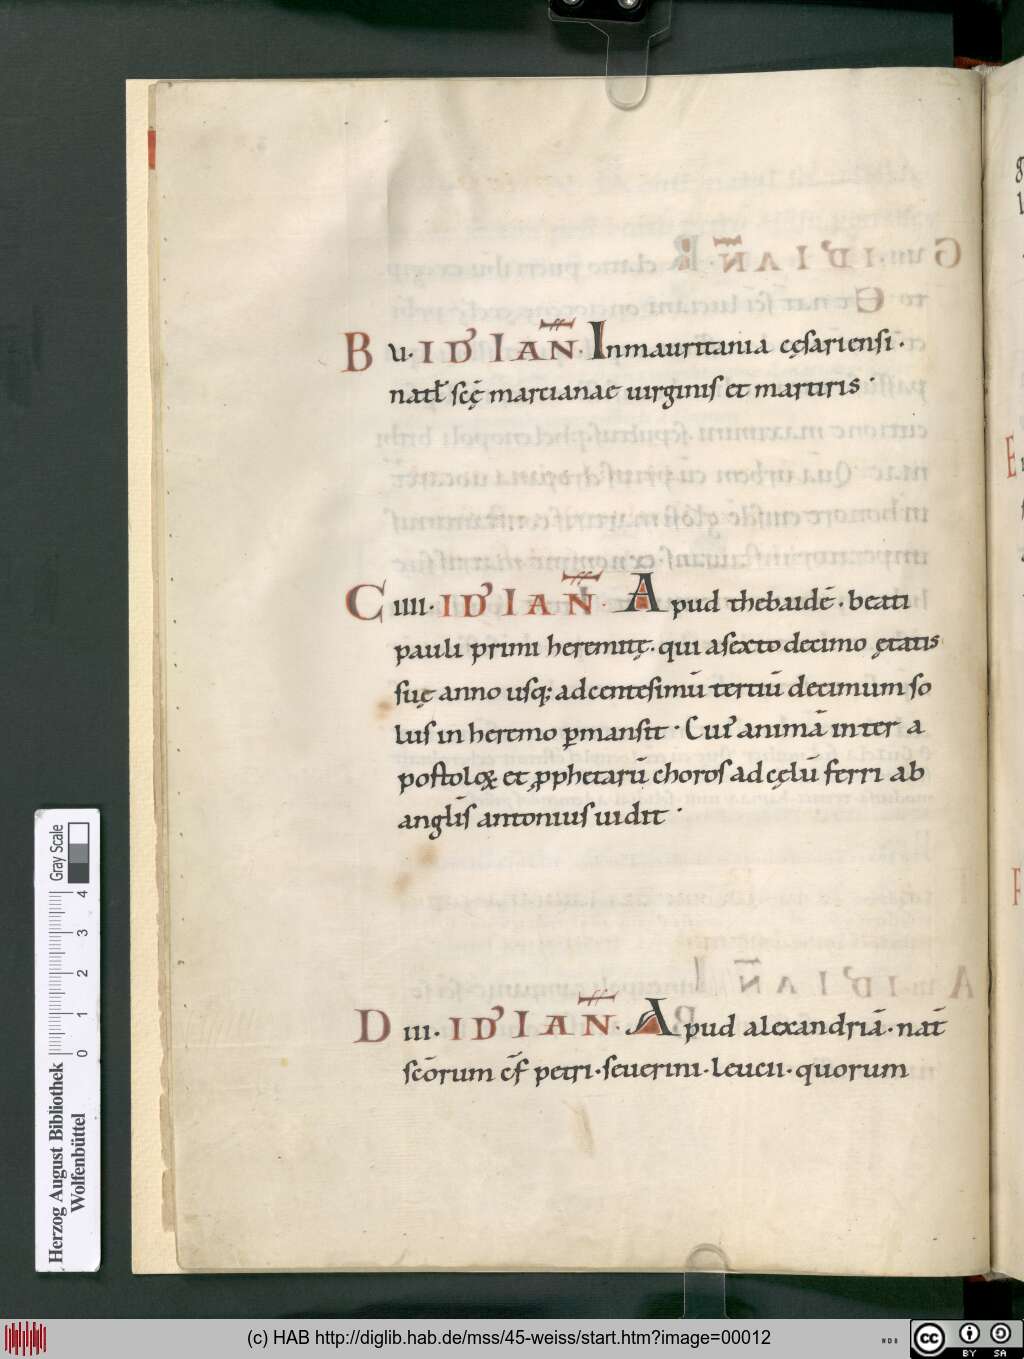 B u· ID' IAÑ· Inmauritania cęsariensi·
natł scę̄ marcianae uirginis et martiris·
C iiii· ID' IAÑ· Apud thebaidē· beati
pauli primi heremitę· qui asexto decimo ętatis
suę anno usq; adcentesimū tertiū decimum so
lus in heremo ꝑmansit· Cui' animā inter a
postoloꝝ et ꝓphetarū choros ad cęlū ferri ab
anglīs antonius uidit·
D iii· ID' IAÑ· Apud alexandriā· nat̄
scōrum c̄f petri· seuerini· leucii· quorum
Gray Scale
0 1 2 3 4
Herzog August Bibliothek
Wolfenbüttel
(c) HAB http://diglib.hab.de/mss/45-weiss/start.htm?image=00012
WDB
cc BY SA